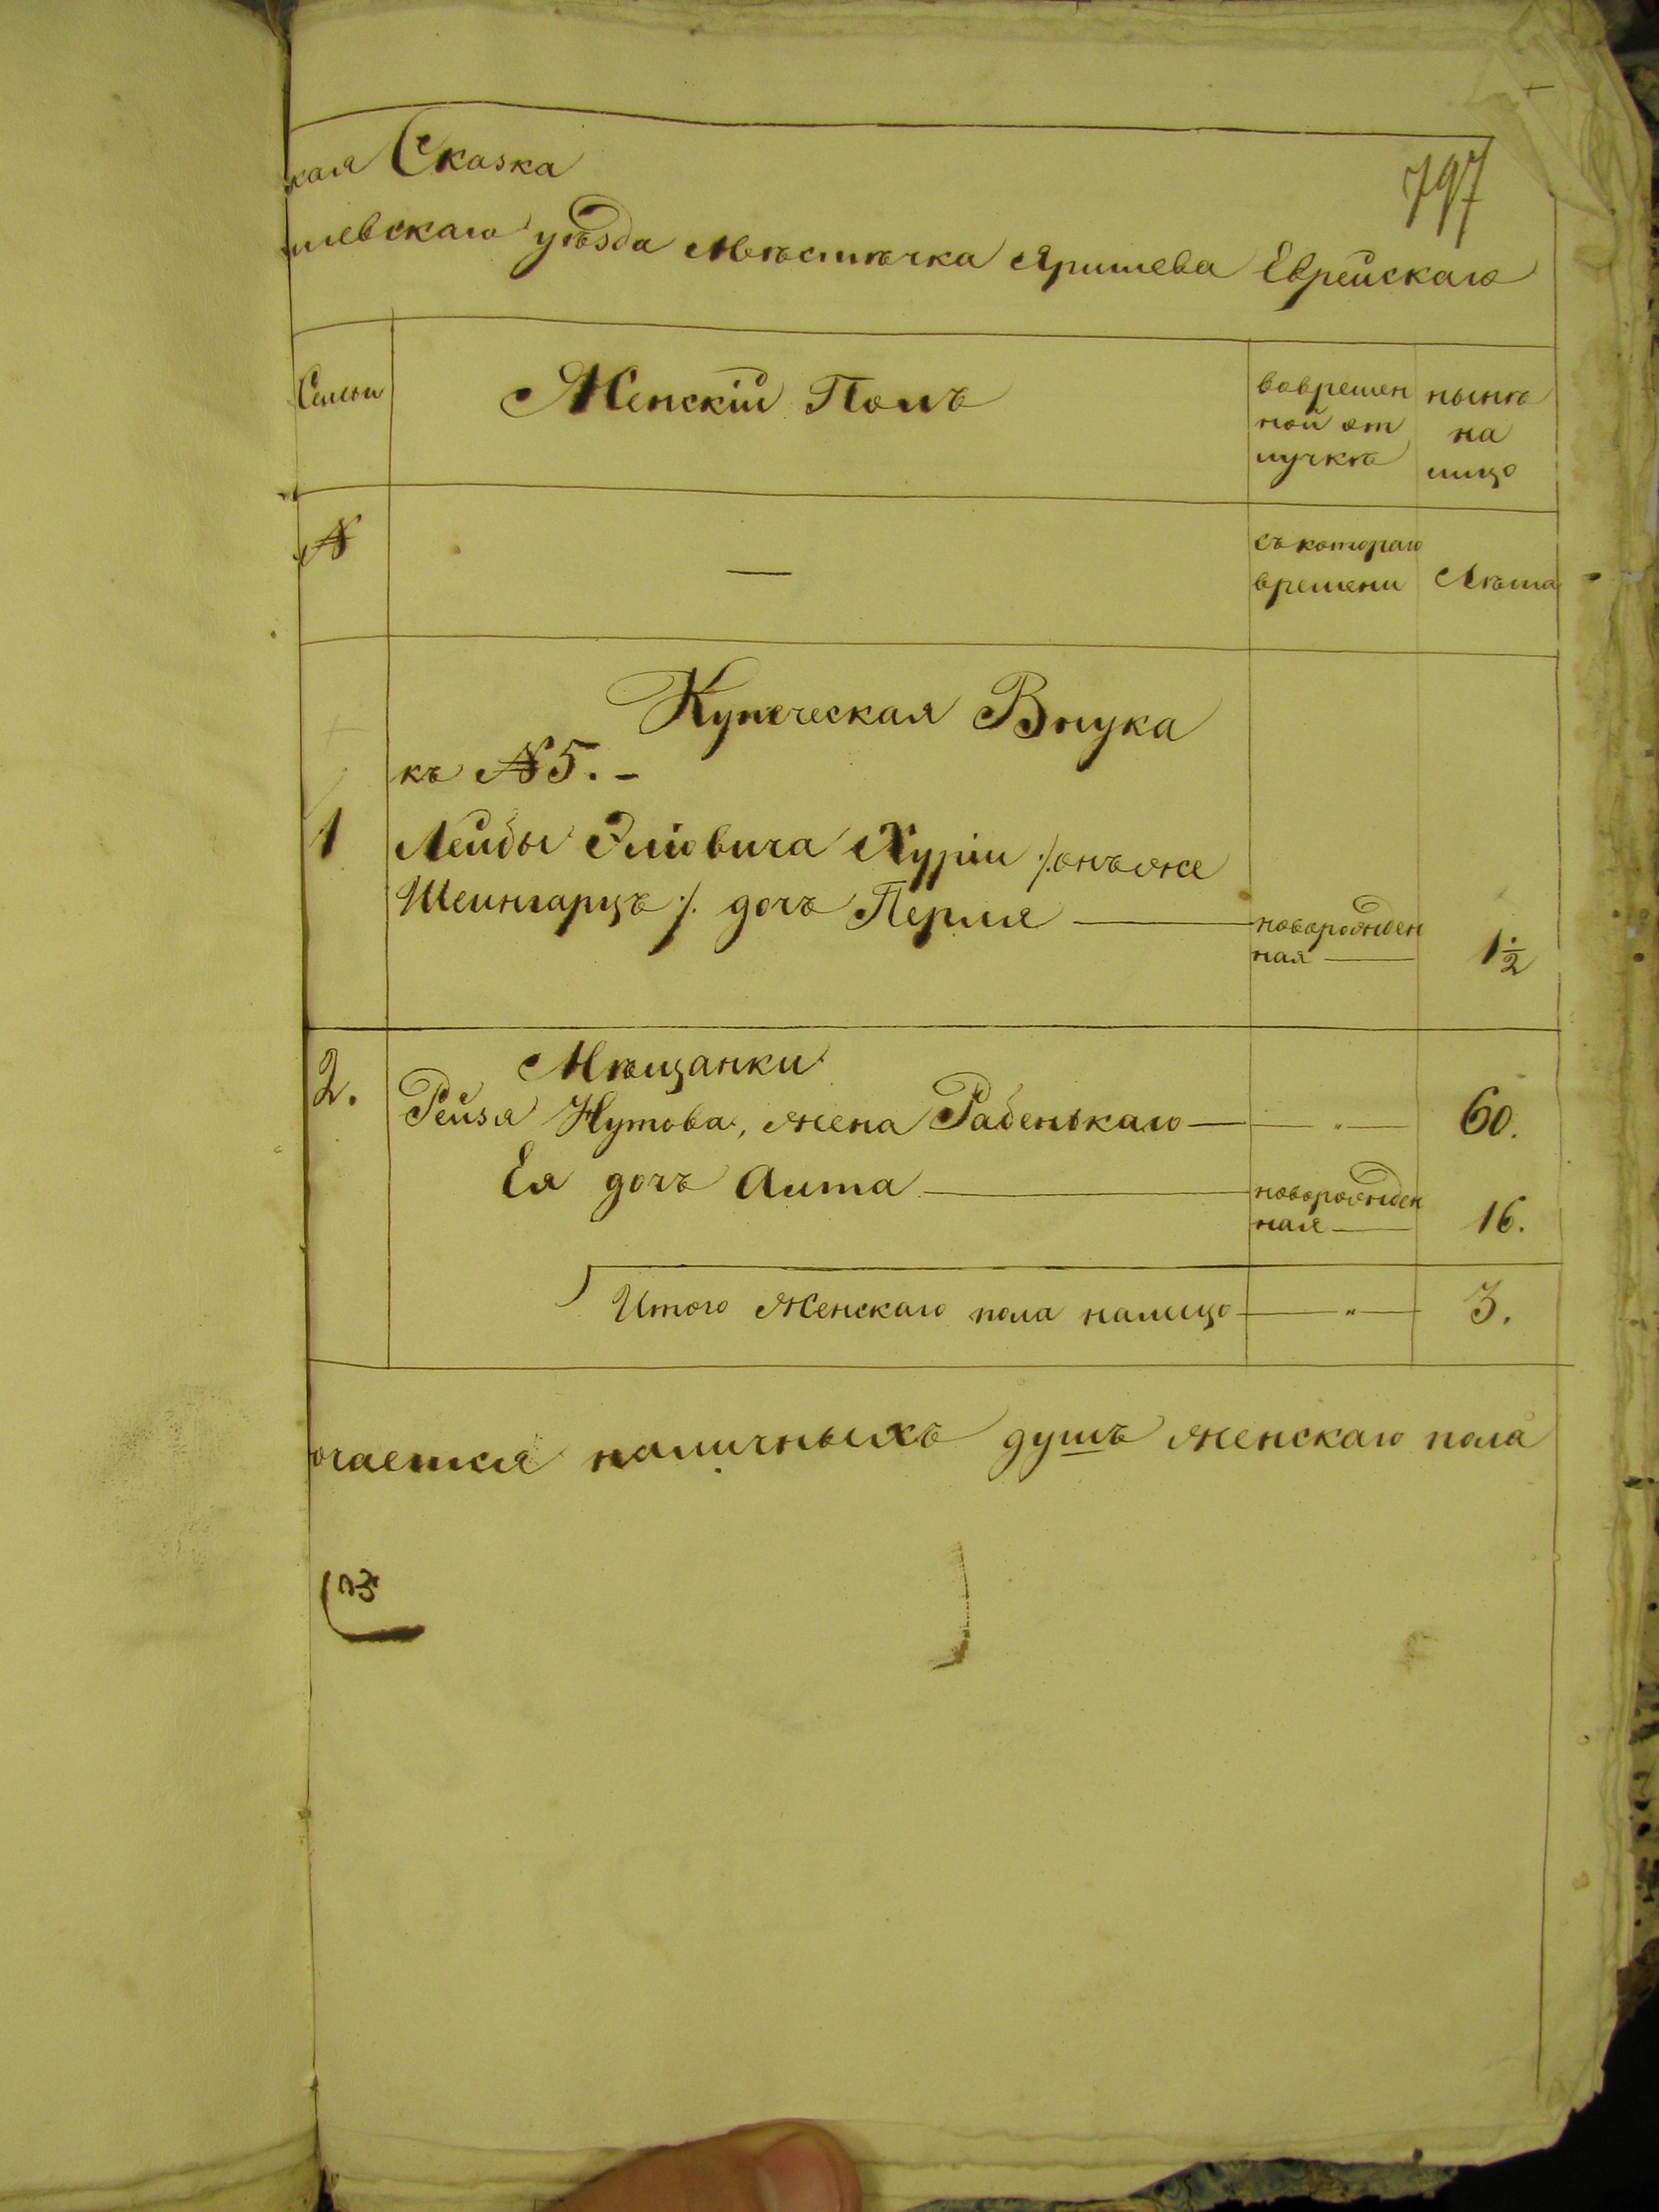 кая Сказка
797
илевскаго уѣзда Мѣстѣчка Яришева Еврейскаго
Семьи
Женскій Полъ
вовремен
ной от
лучкѣ
нынѣ
на
лицо
№
—
съ котораго
времени
Лѣта
Купеческая Внука
къ №5.-
1 Лейбы Эліовича Хуріи /.онъ же
Шеингарцъ /. дочъ Перля — новорожден
ная — 1½
2. Мѣщанки
Рейзя Нутова, жена Рабенькаго — " — 60.
Ея дочъ Аита — новорожден
ная — 16.
Итого Женскаго пола налицо — " — 3.
очается наличныхъ душъ женскаго пола